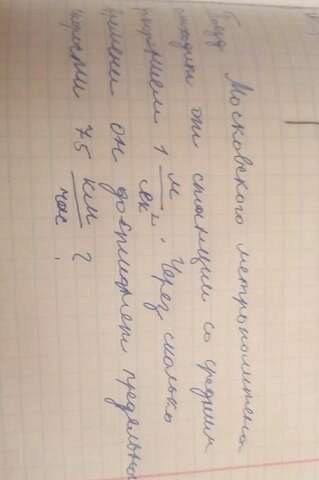 Поезд Московского метрополитена
отходит от станции со средним
ускорением 1 м/сек². Через сколько
времени он достигнет предельно
скорости 75 км/час?